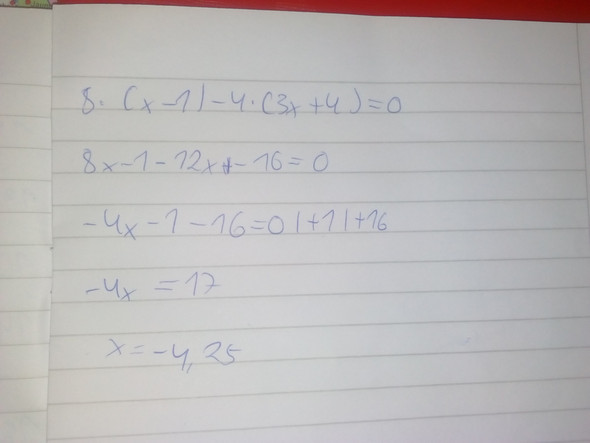 8·(x-1)-4·(3x+4)=0
8x-1-12x-16=0
-4x-1-16=0|+1|+16
-4x=17
x=-4,25